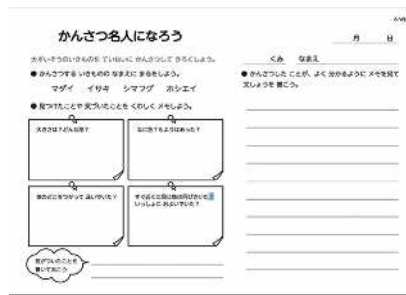 かんさつ名人になろう
月 日
くみ なまえ
大すいそうのいきものを ていねいに かんさつして きろくしよう。
● かんさつする いきものの なまえに まるをしよう。
マダイ イサキ シマフグ ホシエイ
● 見つけたことや 気づいたことを くわしく メモしよう。
大きさは？どんな形？
なに色？もようはあった？
体のどこをつかって 泳いでいた？
いっしょに およいでいた？
気がついたことを
書いておこう
● かんさつした ことが、よく 分かるように メモを見て
文しょうを 書こう。